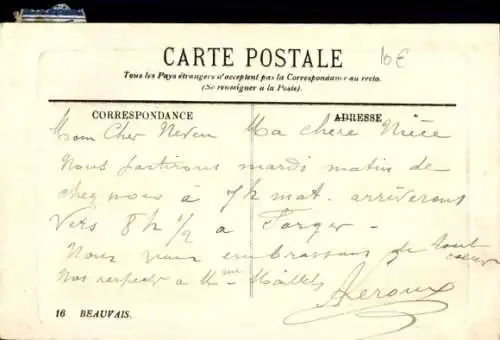 10€
CARTE POSTALE
Tous les Pays étrangers n'acceptent pas la Correspondance au recto.
(Se renseigner à la Poste)
CORRESPONDANCE
ADRESSE
Mon Cher Neveu Ma chère Nièce
Nous partirons mardi matin de
chez nous à 7h mat. arriverons
vers 8h 1/2 a Farger.
Nous vous embrassons de tout
coeur
Nos respects a Mme
Leroux
16 BEAUVAIS.